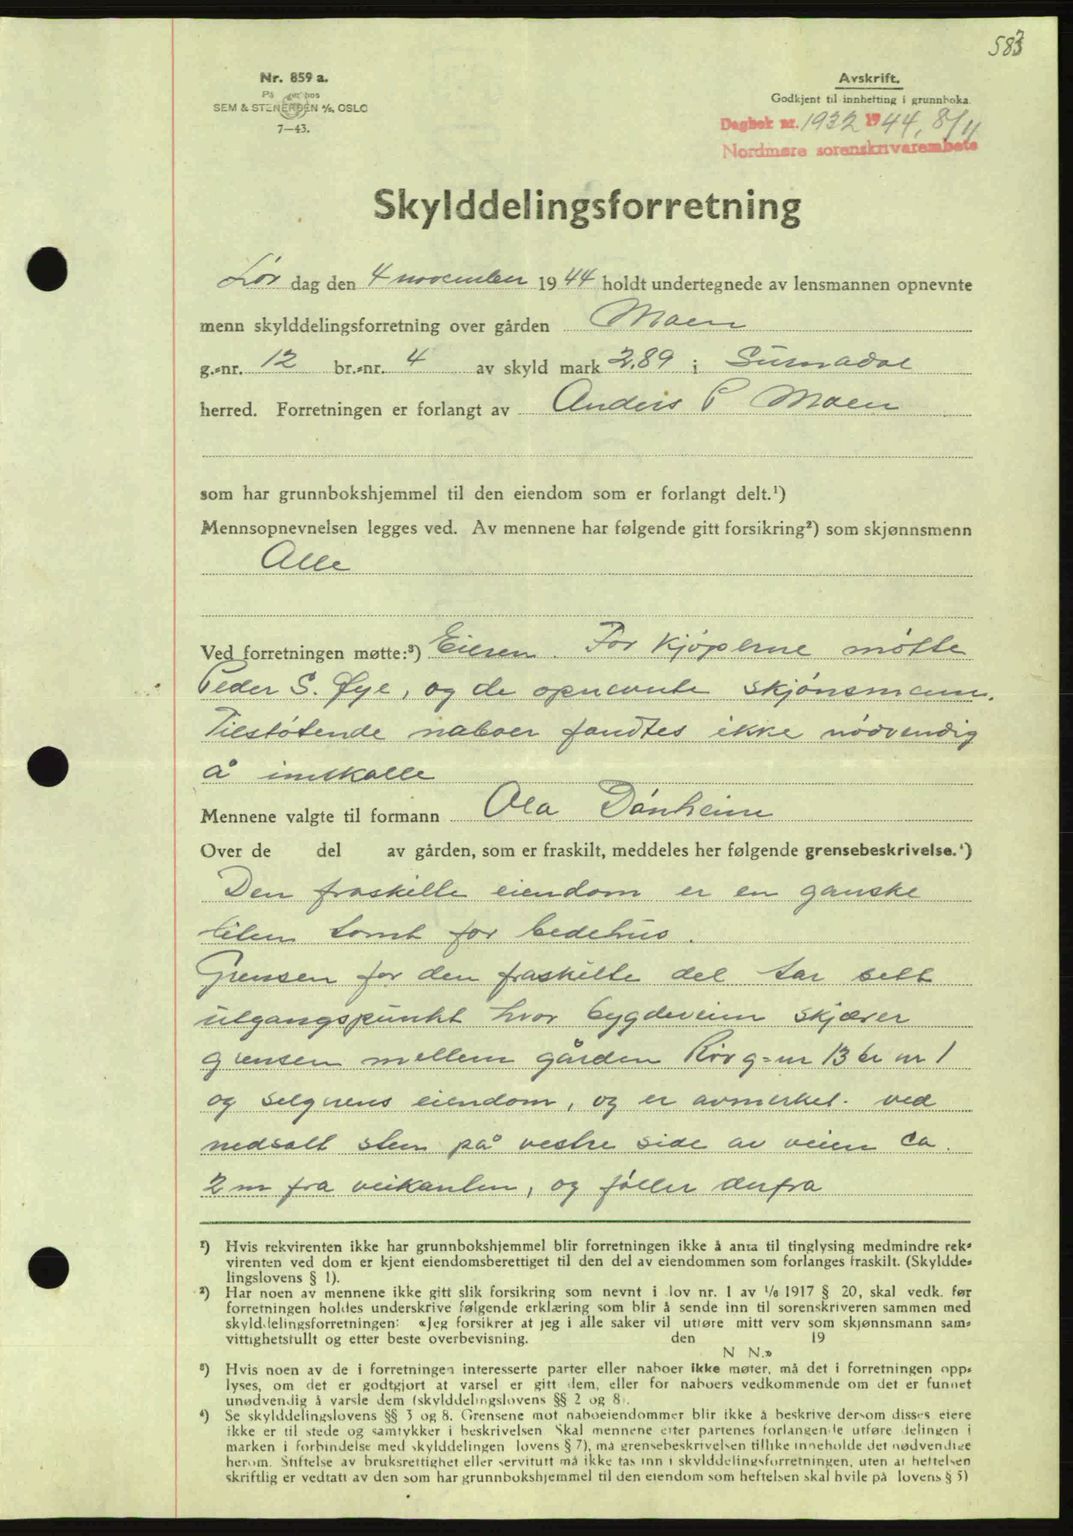 583
Nr. 859 a.
På lager hos
SEM & STENERSEN A/S, OSLO
7—43.
Avskrift.
Godkjent til innhefting i grunnboka.
Dagbok nr. 1932 1944, 8/11
Nordmøre sorenskriverembete
Skylddelingsforretning
Lør dag den 4 november 1944 holdt undertegnede av lensmannen opnevnte
menn skylddelingsforretning over gården Moen
g.-nr. 12 br.-nr. 4 av skyld mark 2,89 i Surnadal
herred. Forretningen er forlangt av Anders P Moen
som har grunnbokshjemmel til den eiendom som er forlangt delt.¹)
Mennsopnevnelsen legges ved. Av mennene har følgende gitt forsikring²) som skjønnsmenn
Alle
Ved forretningen møtte:³) Eieren. For kjøperne møtte
Peder S. Øye, og de opnevnte skjønsmenn.
Tilstøtende naboer fandtes ikke nødvendig
å innkalle
Mennene valgte til formann Ola Dønheim
Over de del av gården, som er fraskilt, meddeles her følgende grensebeskrivelse.⁴)
Den fraskilte eiendom er en ganske
liten tomt for bedehus.
Grensen for den fraskilte del tar sett
utgangspunkt hvor bygdeveien skjærer
grensen mellem gården Rør g-nr 13 br nr 1
og selgerens eiendom, og er avmerket ved
nedsatt sten på vestre side av veien ca.
2 m fra veikanten, og følger derfra
¹) Hvis rekvirenten ikke har grunnbokshjemmel blir forretningen ikke å anta til tinglysing medmindre rek-
virenten ved dom er kjent eiendomsberettiget til den del av eiendommen som forlanges fraskilt. (Skyldde-
lingslovens § 1).
²) Har noen av mennene ikke gitt slik forsikring som nevnt i lov nr. 1 av 1/6 1917 § 20, skal vedk. før
forretningen holdes underskrive følgende erklæring som blir å sende inn til sorenskriveren sammen med
skylddelingsforretningen: «Jeg forsikrer at jeg i alle saker vil utføre mitt verv som skjønnsmann sam-
vittighetsfullt og etter beste overbevisning. den 19
N N.»
³) Hvis noen av de i forretningen interesserte parter eller naboer ikke møter, må det i forretningen opp-
lyses, om det er godtgjort at varsel er gitt dem, eller for naboers vedkommende om det er funnet
unødvendig å varsle dem (skylddelingslovens §§ 2 og 8).
⁴) Se skylddelingslovens §§ 3 og 8. Grensene mot naboeiendommer blir ikke å beskrive dersom disses eiere
ikke er til stede og samtykker i beskrivelsen. Skal mennene etter partenes forlangende utføre delingen i
marken i forbindelse med skylddelingen (lovens § 7), må grensebeskrivelsen tillike inneholde det nødvendige
herom. Stiftelse av bruksrettighet eller servitutt må ikke tas inn i skylddelingsforretningen, uten at heftelsen
skriftlig er vedtatt av den som har grunnbokshjemmel til den eiendom som heftelsen skal hvile på (lovens § 5)